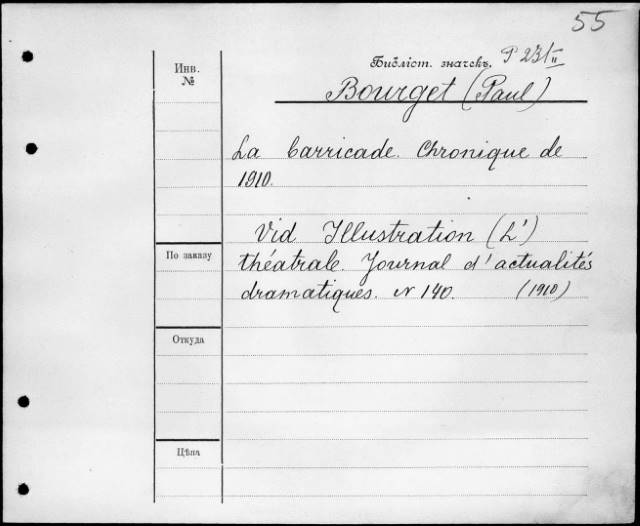 55
Инв.
№
Библіот. значекъ. P 231 II
Bourget (Paul)
La barricade. Chronique de
1910.
Vid Illustration (L')
théatrale. Journal d'actualités
dramatiques. N 140. (1910)
По заказу
Откуда
Цѣна